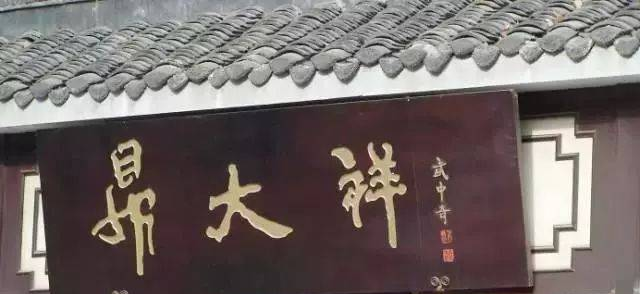 鼎大祥
武中奇